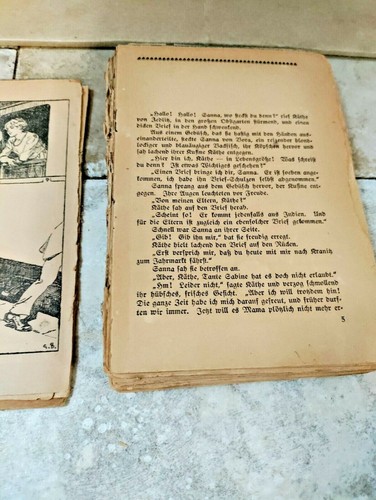 „Hallo! Hallo! Sanna, wo steckst du denn?“ rief Käthe
von Zedlitz, in den großen Obstgarten stürmend, und einen
dicken Brief in der Hand schwenkend.
Aus einem Gebüsch, das sie hastig mit den Händen aus-
einanderteilte, steckte Sanna von Bora, ein reizender blond-
lockiger und blauäugiger Backfisch, ihr Köpfchen hervor und
sah lachend ihrer Kusine Käthe entgegen.
„Hier bin ich, Käthe — in Lebensgröße! Was schreist
du denn? Ist etwas Wichtiges geschehen?“
„Einen Brief bringe ich dir, Sanna. Er ist soeben ange-
kommen, ich habe ihn Brief-Schulzen selbst abgenommen.“
Sanna sprang aus dem Gebüsch hervor, der Kusine ent-
gegen. Ihre Augen leuchteten vor Freude.
„Von meinen Eltern, Käthe?“
Käthe sah auf den Brief herab.
„Scheint so! Er kommt jedenfalls aus Indien. Und
für die Eltern ist zugleich ein ebensolcher Brief gekommen.“
Schnell war Sanna an ihrer Seite.
„Gib! Gib ihn mir,“ bat sie freudig erregt.
Käthe hielt lachend den Brief auf den Rücken.
„Erst versprich mir, daß du heute mit mir nach Kranitz
zum Jahrmarkt fährst.“
Sanna sah sie betroffen an.
„Aber, Käthe, Tante Sabine hat es doch nicht erlaubt.“
„Hm! Leider nicht,“ sagte Käthe und verzog schmollend
ihr hübsches, frisches Gesicht. „Aber ich will trotzdem hin!
Die ganze Zeit habe ich mich darauf gefreut, und früher durf-
ten wir immer. Jetzt will es Mama plötzlich nicht mehr er-
5